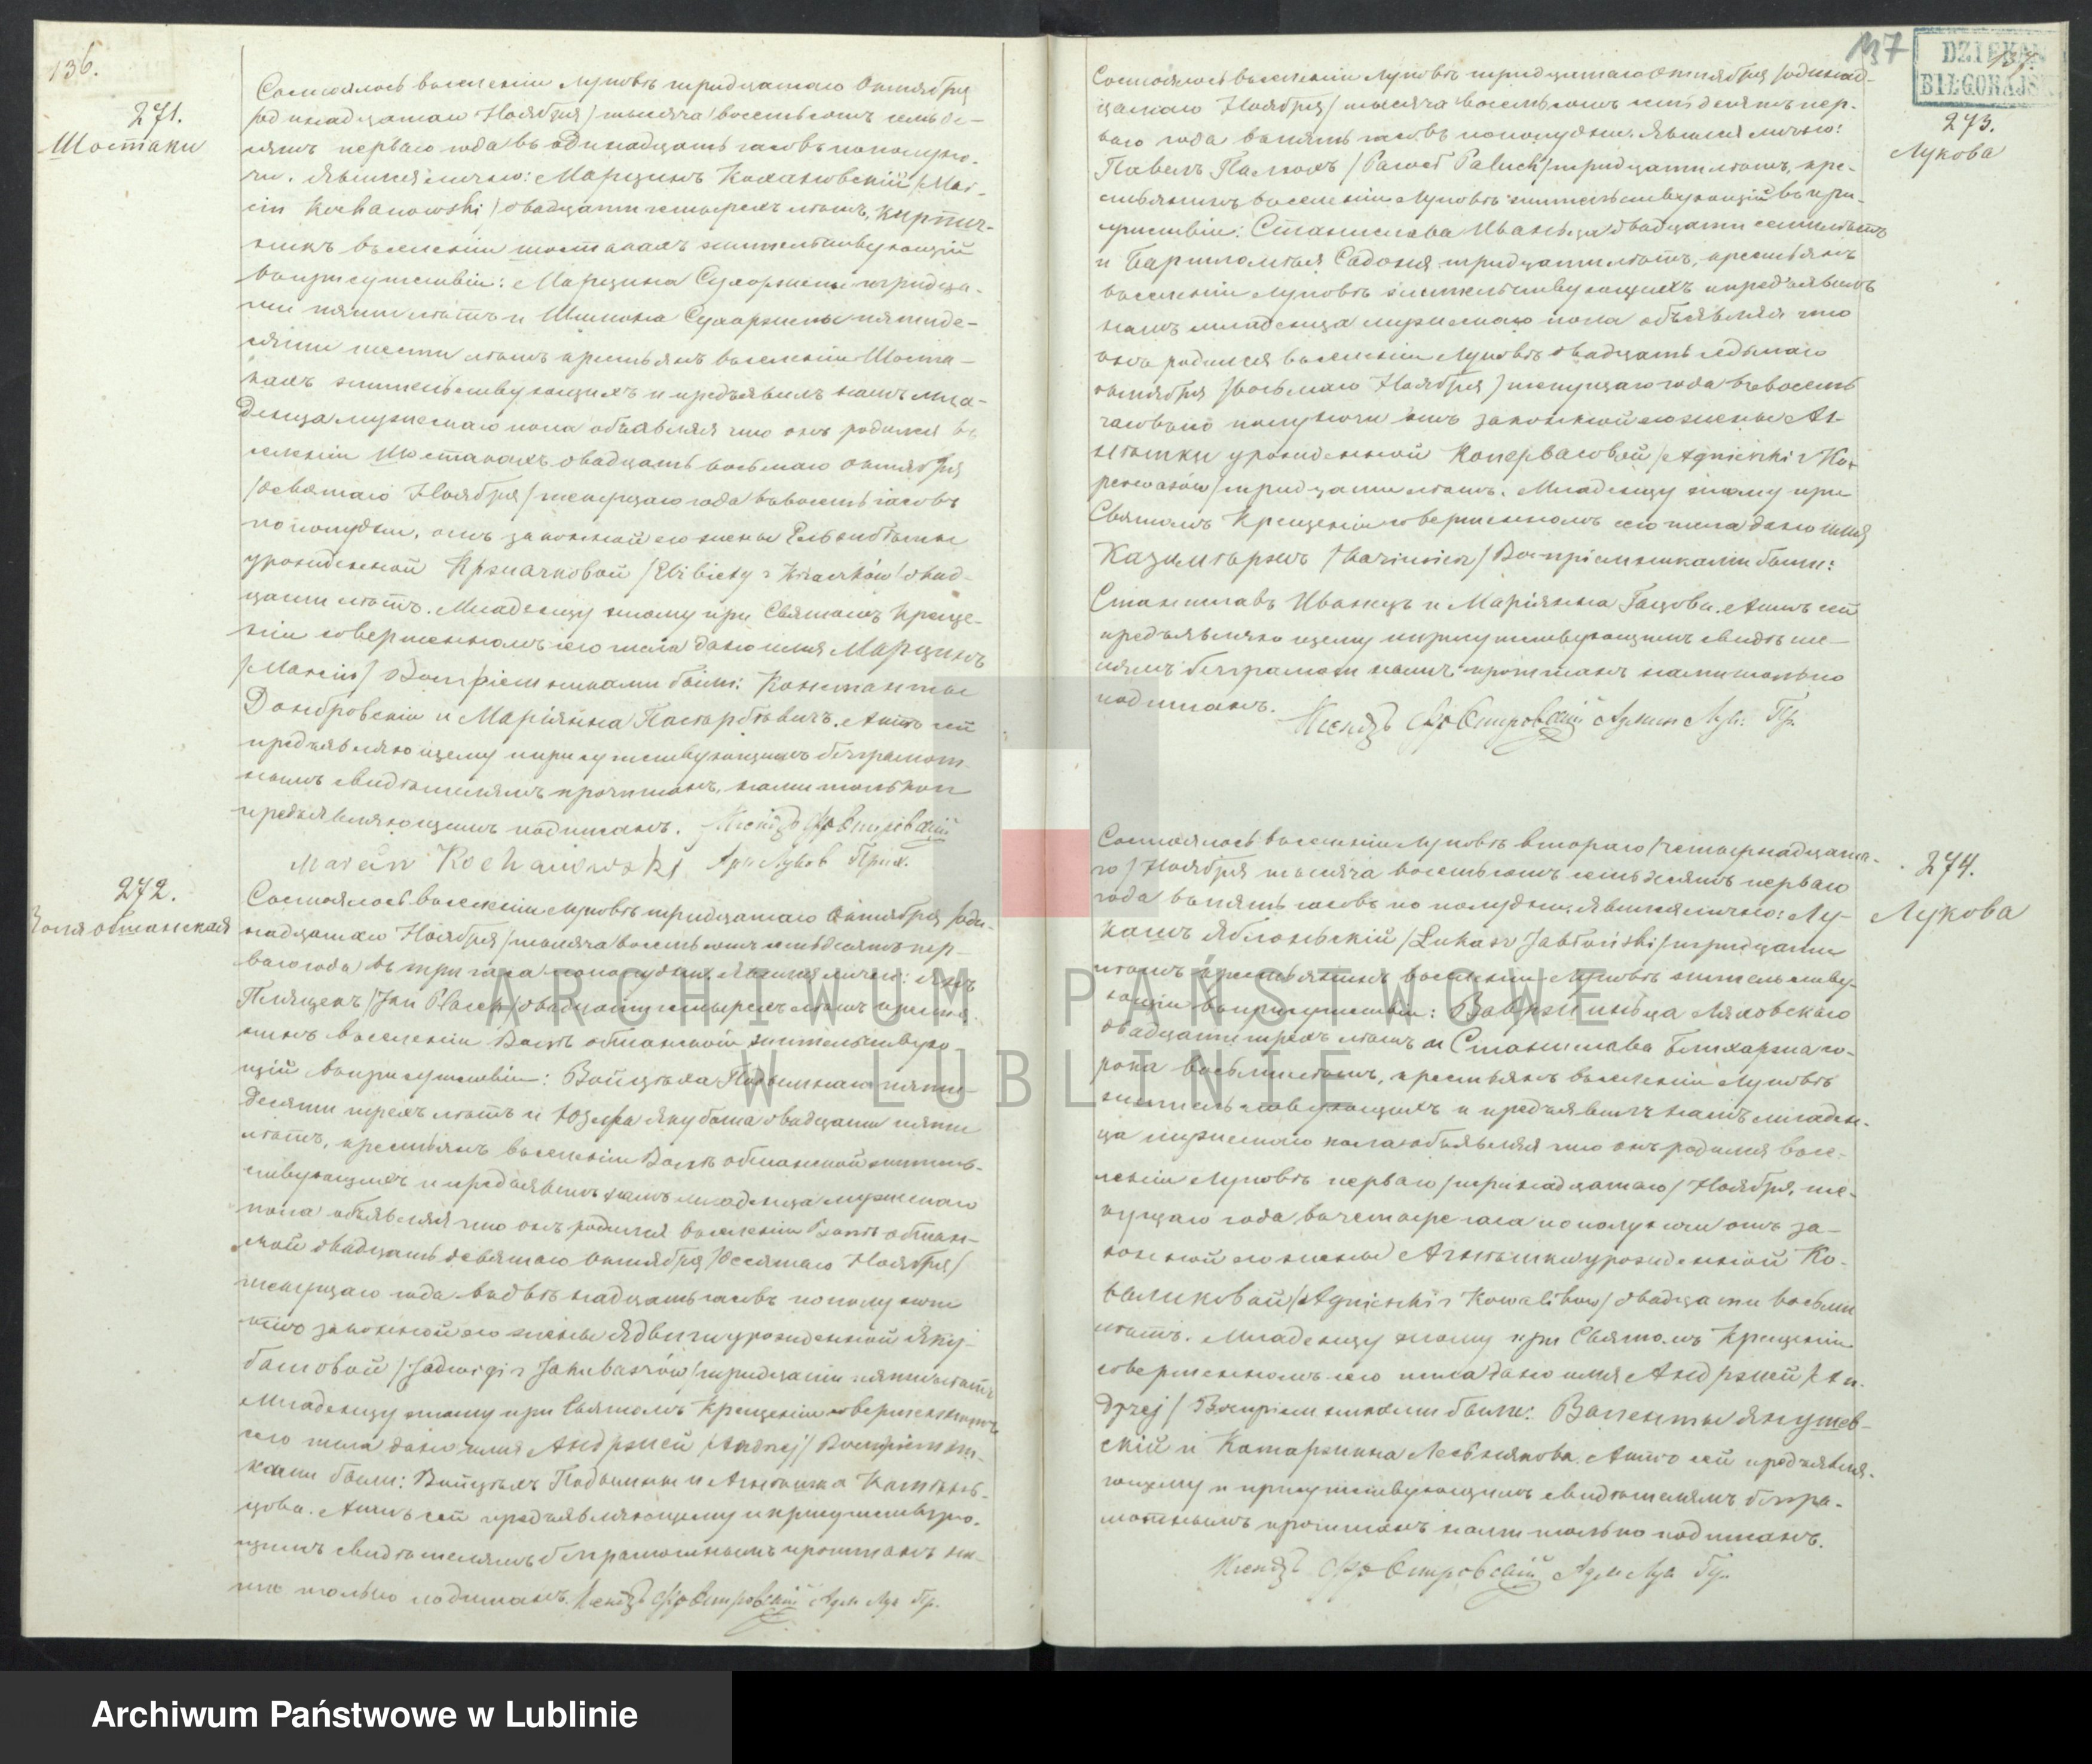 136.
271.
Шостаки
Состоялось в селении Лукове тридцатаго Октября
/одинадцатаго Ноября/ тысяча восемьсотъ семьде-
сятъ перваго года въ одинадцать часовъ пополуно-
чи. Явился лично: Марцинъ Кохановскій /Mar-
cin Kochanowski/ двадцати четырехъ летъ, кирпич-
никъ въ селении Шостакахъ жительствующій
въ присутствіи: Марцина
ти пяти летъ и Шимона пятиде-
сяти шести летъ крестьянъ въ селении Шоста-
кахъ жительствующихъ и предъявилъ намъ мла-
денца мужескаго пола объявляя что онъ родился въ
селении Шостакахъ двадцать восьмаго Октября
/девятаго Ноября/ текущаго года въ восемь часовъ
пополудни, отъ законной его жены Ельжбеты
урожденной Кржачковой /Elżbiety z Krzaczków/ двад-
цати летъ. Младенцу этому при Святомъ Креще-
ніи совершенномъ сего числа дано имя Марцинъ
/Marcin/ Воспріемниками были: Константы
Домбровскій и Маріянна. Актъ сей
предъявляющему и присутствующимъ безграмот-
нымъ свидетелямъ прочитанъ, нами только и
предъявляющимъ подписанъ. Ксендзъ
Marcin Kochanowski
272.
Воляобшанская
Состоялось в селении Лукове тридцатаго Октября /оди-
надцатаго Ноября/ тысяча восемьсотъ семьдесятъ пер-
ваго года въ три часа пополудни. Явился лично: Янъ
/Jan Placek/ двадцати четырехъ летъ крестья-
нинъ в селении Воле обшанской жительствую-
щій въ присутствіи: Войцеха пяти-
десяти трехъ летъ и Юзефа Якубаша двадцати пяти
летъ, крестьянъ в селении Воле обшанской житель-
ствующихъ и предъявилъ намъ младенца мужескаго
пола объявляя что онъ родился в селении Воле обшан-
ской двадцать девятаго Октября /десятаго Ноября/
текущаго года въ двенадцать часовъ пополуночи
отъ законной его жены Ядвиги урожденной Яку-
башовой /Jadwigi z Jakubaszów/ тридцати пяти летъ
Младенцу этому при Святомъ Крещеніи совершенномъ
сего числа дано имя Андржей /Andrzej/ Воспріемни-
ками были: Войцехъ и Агнешка
Актъ сей предъявляющему и присутствую-
щимъ свидетелямъ безграмотнымъ прочитанъ на-
ми только подписанъ. Ксендзъ
137
DZIEKAN
BIŁGORAJS
273.
Лукова
Состоялось в селении Лукове тридцатаго Октября /одинад-
цатаго Ноября/ тысяча восемьсотъ семьдесятъ пер-
ваго года въ пять часовъ пополудни. Явился лично:
Павелъ Палюхъ /Paweł Paluch/ тридцати летъ, кре-
стьянинъ в селении Лукове жительствующій въ при-
сутствіи: Станислава Иванца двадцати семи летъ
и Бартломея тридцати летъ, крестьянъ
в селении Лукове жительствующихъ и предъявилъ
намъ младенца мужескаго пола объявляя что
онъ родился в селении Лукове двадцать седьмаго
Октября /восьмаго Ноября/ текущаго года въ восемь
часовъ по полуночи отъ законной его жены Аг-
нешки урожденной /Agnieszki z
/тридцати летъ. Младенцу этому при
Святомъ Крещеніи совершенномъ сего числа дано имя
Казимержъ /Kazimierz/ Воспріемниками были:
Станиславъ Иванецъ и Маріянна. Актъ сей
предъявляющему и присутствующимъ свидете-
лямъ безграмотнымъ прочитанъ нами только
подписанъ.
Ксендзъ
274.
Лукова
Состоялось в селении Лукове втораго /четырнадцата-
го/ Ноября тысяча восемьсотъ семьдесятъ перваго
года въ пять часовъ по полудни. Явился лично: Лу-
кашъ Яблоньскій /Łukasz Jabłoński/ тридцати
летъ крестьянинъ в селении Лукове жительству-
ющій въ присутствіи: Вавржиньца Ляховскаго
двадцати трехъ летъ и Станислава со-
рока восьми летъ, крестьянъ в селении Лукове
жительствующихъ и предъявилъ намъ младен-
ца мужескаго пола объявляя что онъ родился в се-
лении Лукове перваго /тринадцатаго/ Ноября, те-
кущаго года въ четыре часа по полуночи отъ за-
конной его жены Агнешки урожденной Ко-
валиковой /Agnieszki z Kowalików/ двадцати восьми
летъ. Младенцу этому при Святомъ Крещеніи
совершенномъ сего числа дано имя Андржей /An-
drzej/ Воспріемниками были: Валенты Янушев-
скій и Катаржина. Актъ сей предъявля-
ющему и присутствующимъ свидетелямъ безгра-
мотнымъ прочитанъ нами только подписанъ.
Ксендзъ
ARCHIWUM PAŃSTWOWE
W LUBLINIE
Archiwum Państwowe w Lublinie